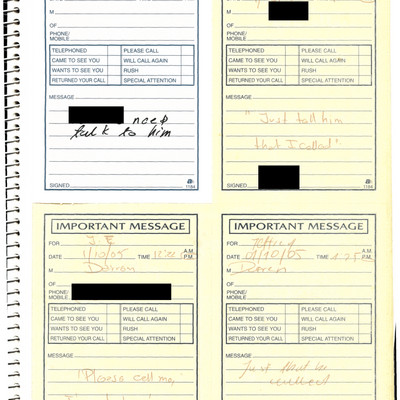 M
M
OF
OF
PHONE/
MOBILE
PHONE/
MOBILE
TELEPHONED PLEASE CALL
CAME TO SEE YOU WILL CALL AGAIN
WANTS TO SEE YOU RUSH
RETURNED YOUR CALL SPECIAL ATTENTION
TELEPHONED PLEASE CALL
CAME TO SEE YOU WILL CALL AGAIN
WANTS TO SEE YOU RUSH
RETURNED YOUR CALL SPECIAL ATTENTION
MESSAGE
need
talk to him
MESSAGE
"Just tell him
that I called"
SIGNED 1184
SIGNED 1184
IMPORTANT MESSAGE
FOR J.E
DATE 1/10/05 TIME A.M. P.M.
M Darren
OF
PHONE/
MOBILE
TELEPHONED PLEASE CALL
CAME TO SEE YOU WILL CALL AGAIN
WANTS TO SEE YOU RUSH
RETURNED YOUR CALL SPECIAL ATTENTION
MESSAGE
"Please call me,
IMPORTANT MESSAGE
FOR
DATE 01/10/05 TIME A.M. P.M.
M Darren
OF
PHONE/
MOBILE
TELEPHONED PLEASE CALL
CAME TO SEE YOU WILL CALL AGAIN
WANTS TO SEE YOU RUSH
RETURNED YOUR CALL SPECIAL ATTENTION
MESSAGE
Just that he
called